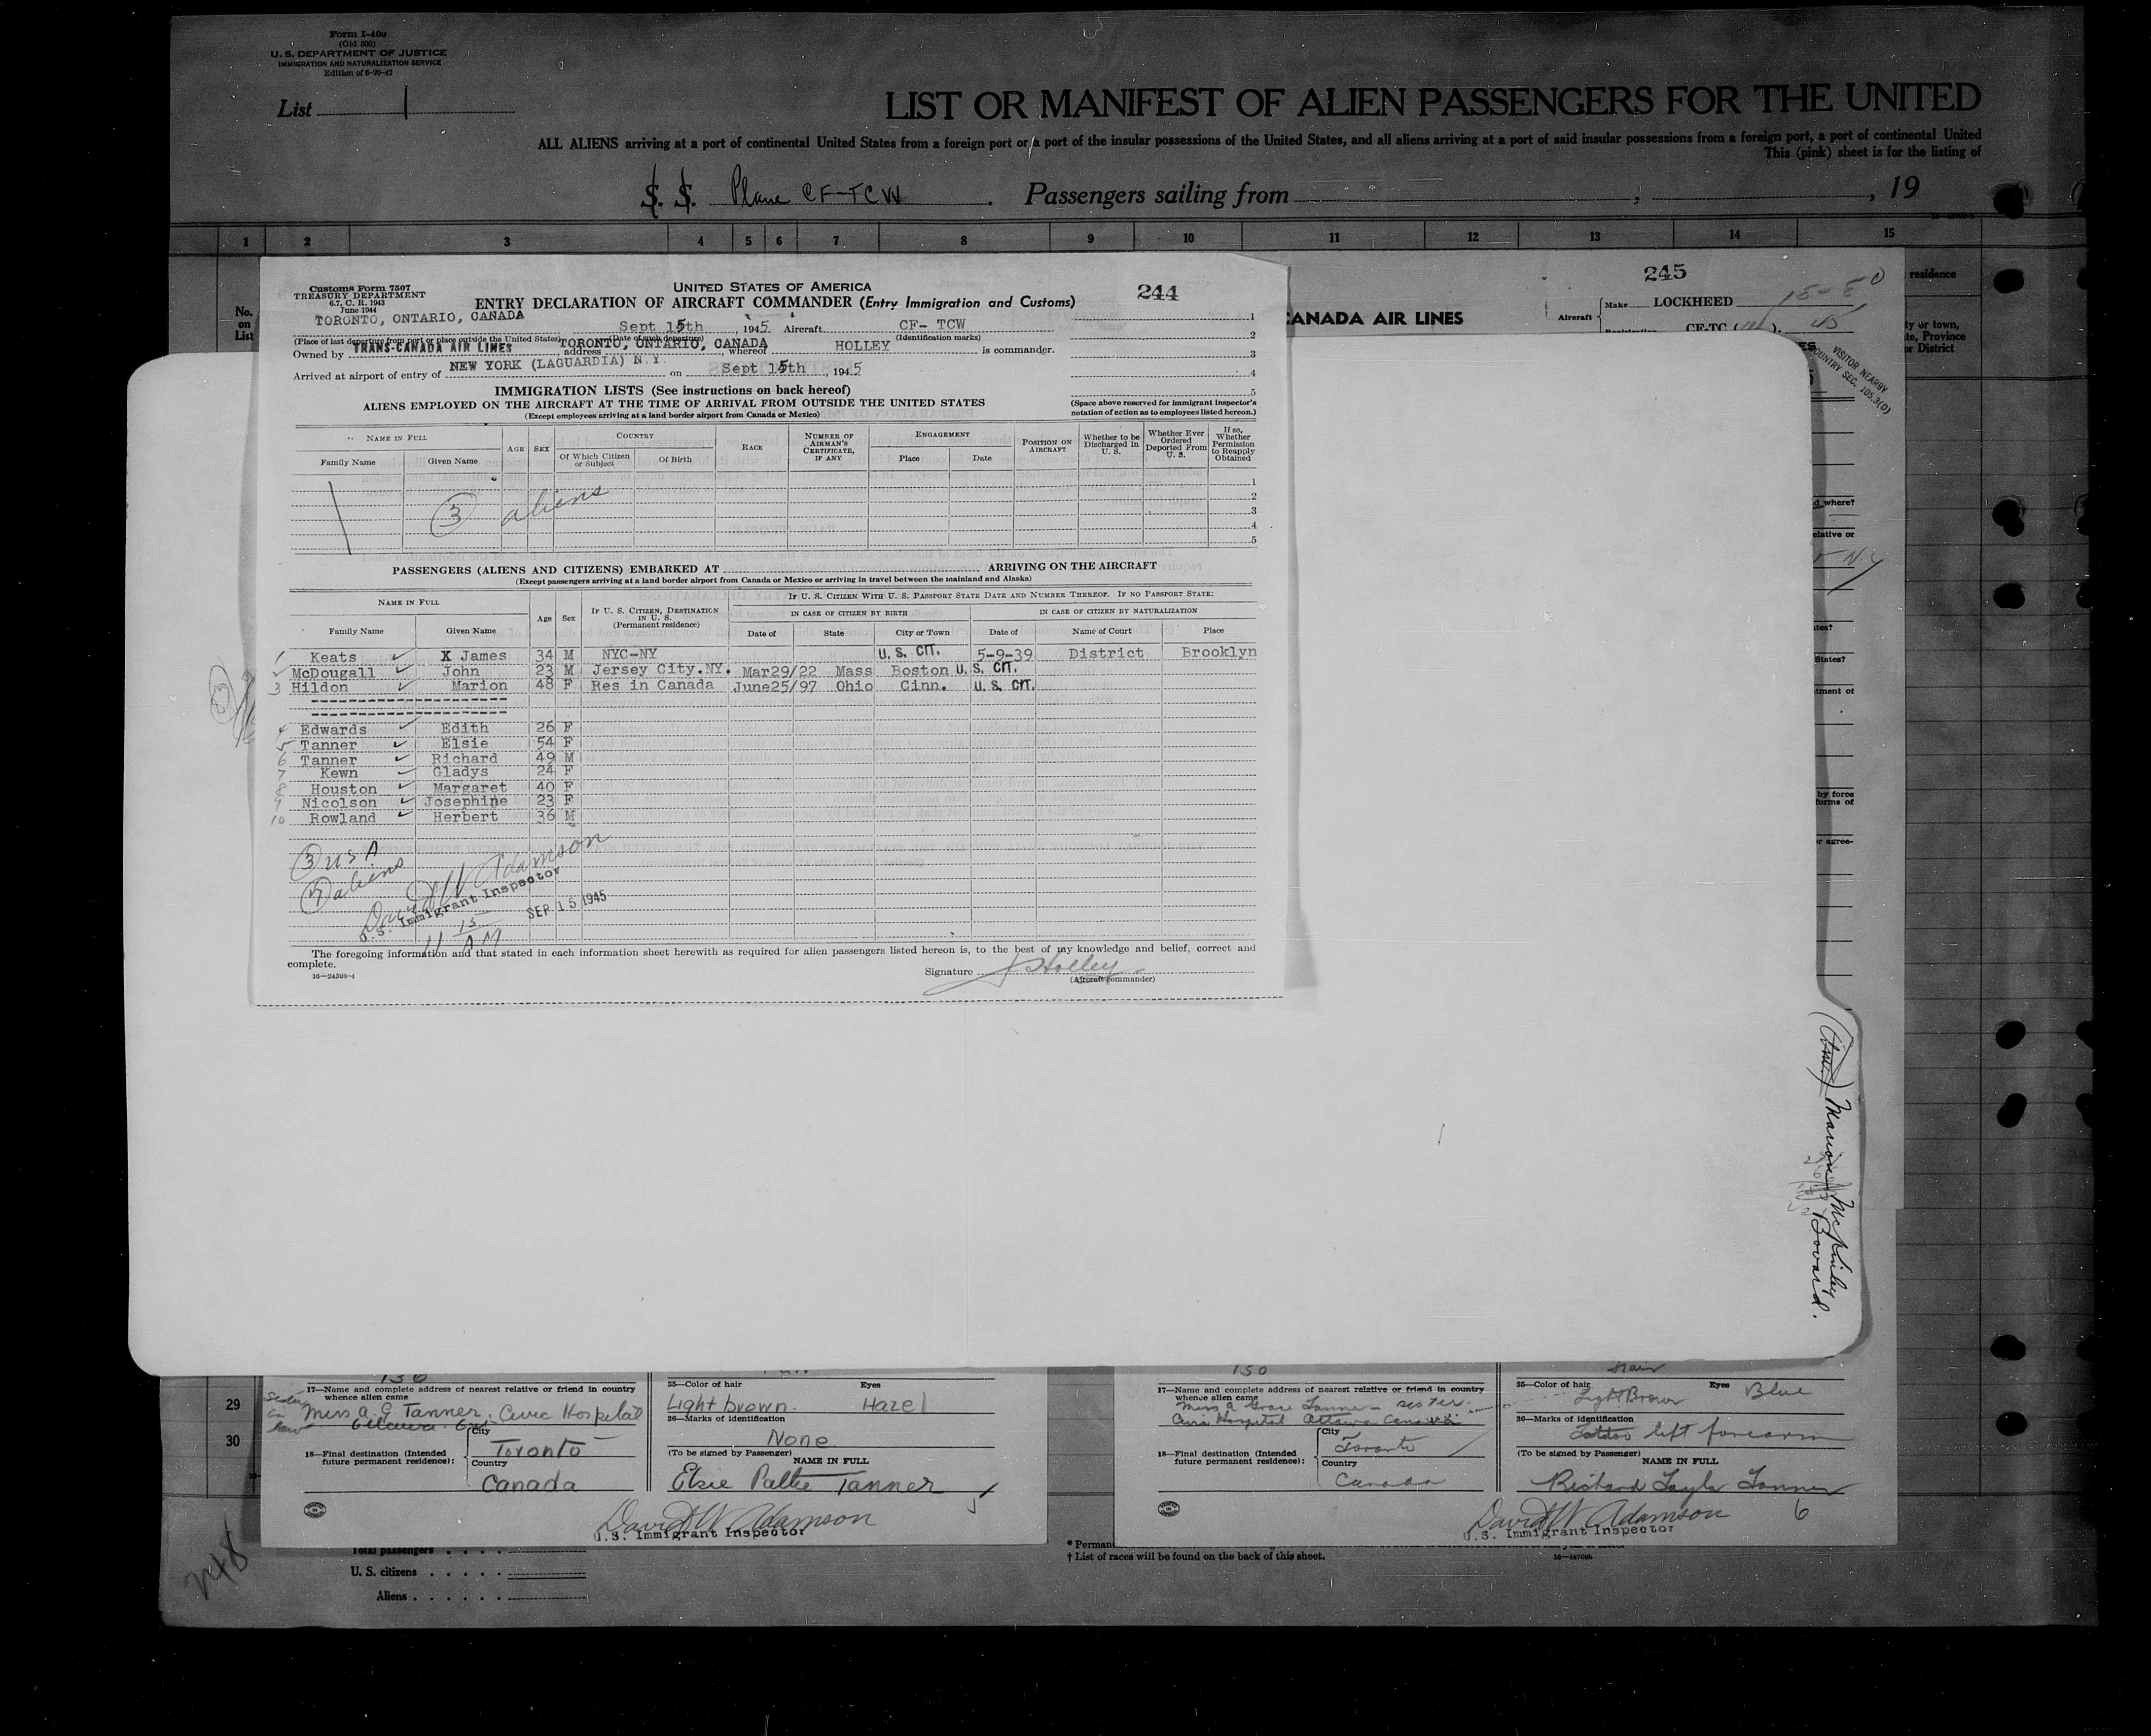 Form I-400
(Old 500)
U. S. DEPARTMENT OF JUSTICE
IMMIGRATION AND NATURALIZATION SERVICE
Edition of 6-20-42
List 1
LIST OR MANIFEST OF ALIEN PASSENGERS FOR THE UNITED
ALL ALIENS arriving at a port of continental United States from a foreign port or a port of the insular possessions of the United States, and all aliens arriving at a port of said insular possessions from a foreign port, a port of continental United
This (pink) sheet is for the listing of
S. S. Plane CF-TCW . Passengers sailing from , , 19
1 2 3 4 5 6 7 8 9 10 11 12 13 14 15
No. on List
245
residence
CANADA AIR LINES
Aircraft Make LOCKHEED
CF-TC
ty or town,
te, Province
or District
VISITOR NEARBY
COUNTRY SEC. 105.3(D)
d where?
elative or
N Y
tes?
States?
tment of
by force
forms of
r agree-
Customs Form 7507
TREASURY DEPARTMENT
6.7, C. R. 1943
June 1944
UNITED STATES OF AMERICA
244
ENTRY DECLARATION OF AIRCRAFT COMMANDER (Entry Immigration and Customs)
TORONTO, ONTARIO, CANADA Sept 15th , 1945 Aircraft CF- TCW
(Place of last departure from port or place outside the United States) (Date of such departure) (Identification marks)
Owned by TRANS-CANADA AIR LINES address TORONTO, ONTARIO, CANADA , whereof HOLLEY is commander.
Arrived at airport of entry of NEW YORK (LAGUARDIA) N.Y. on Sept 15th , 1945
1
2
3
4
5
IMMIGRATION LISTS (See instructions on back hereof)
ALIENS EMPLOYED ON THE AIRCRAFT AT THE TIME OF ARRIVAL FROM OUTSIDE THE UNITED STATES
(Except employees arriving at a land border airport from Canada or Mexico)
(Space above reserved for immigrant inspector's notation of action as to employees listed hereon.)
NAME IN FULL AGE SEX COUNTRY RACE NUMBER OF AIRMAN'S CERTIFICATE, IF ANY ENGAGEMENT POSITION ON AIRCRAFT Whether to be Discharged in U. S. Whether Ever Ordered Deported From U. S. If so, Whether Permission to Reapply Obtained
Family Name Given Name Of Which Citizen or Subject Of Birth Place Date
1
2
3
4
5
3 aliens
PASSENGERS (ALIENS AND CITIZENS) EMBARKED AT ARRIVING ON THE AIRCRAFT
(Except passengers arriving at a land border airport from Canada or Mexico or arriving in travel between the mainland and Alaska)
NAME IN FULL Age Sex IF U. S. CITIZEN, DESTINATION IN U. S. (Permanent residence) IF U. S. CITIZEN WITH U. S. PASSPORT STATE DATE AND NUMBER THEREOF. IF NO PASSPORT STATE:
IN CASE OF CITIZEN BY BIRTH IN CASE OF CITIZEN BY NATURALIZATION
Family Name Given Name Date of State City or Town Date of Name of Court Place
1 Keats X James 34 M NYC-NY U. S. CIT. 5-9-39 District Brooklyn
McDougall John 23 M Jersey City.NY. Mar29/22 Mass Boston U. S. CIT.
3 Hildon Marion 48 F Res in Canada June25/97 Ohio Cinn. U. S. CIT.
4 Edwards Edith 26 F
5 Tanner Elsie 54 F
6 Tanner Richard 49 M
7 Kewn Gladys 24 F
8 Houston Margaret 40 F
9 Nicolson Josephine 23 F
10 Rowland Herbert 36 M
3 USA
7 aliens
David W Adamson
U. S. Immigrant Inspector
SEP 15 1945
11 15 AM
The foregoing information and that stated in each information sheet herewith as required for alien passengers listed hereon is, to the best of my knowledge and belief, correct and
complete.
16—24598-4
Signature J Holley
(Aircraft commander)
(Cont.) Marion McKinley
Bovard.
29
30
130
17—Name and complete address of nearest relative or friend in country
whence alien came
Sister in law Miss A. G. Tanner, Civic Hospital
Ottawa. Ont
18—Final destination (Intended future permanent residence): City Toronto
Country Canada
35—Color of hair Eyes
Light brown. Hazel
36—Marks of identification
None
(To be signed by Passenger)
NAME IN FULL
Elsie Tanner
5
David W Adamson
U.S. Immigrant Inspector
150
17—Name and complete address of nearest relative or friend in country
whence alien came
Miss A Grace Tanner - sister
Civic Hospital Ottawa Canada
18—Final destination (Intended future permanent residence): City Toronto
Country Canada
35—Color of hair Eyes
Light Brown Blue
36—Marks of identification
Tattoo left forearm
(To be signed by Passenger)
NAME IN FULL
Richard Taylor Tanner
6
David W Adamson
U.S. Immigrant Inspector
248
Total passengers
U. S. citizens
Aliens
* Perman
† List of races will be found on the back of this sheet.